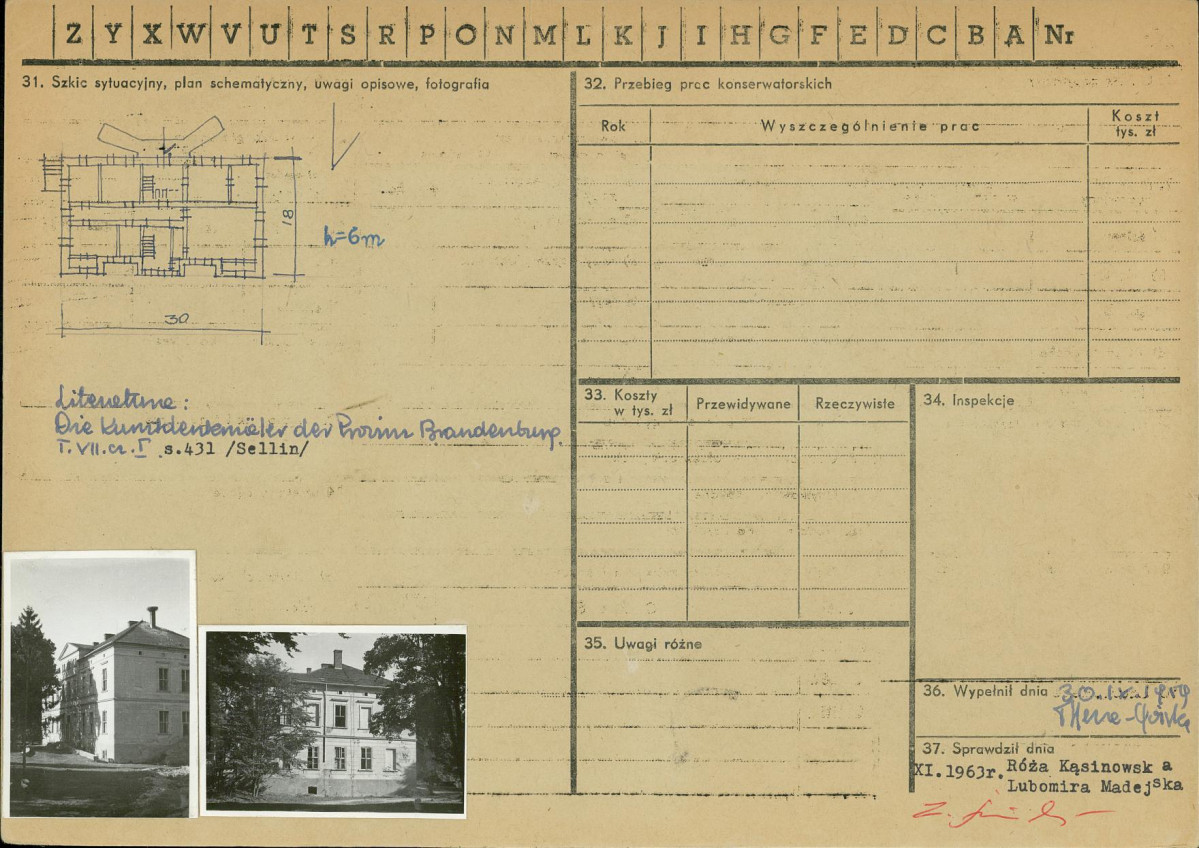 Z Y X W V U T S R P O N M L K J I H G F E D C B A Nr
31. Szkic sytuacyjny, plan schematyczny, uwagi opisowe, fotografia
18
h=6m
30
Literatura:
Die Kunstdenkmäler der Provinz Brandenburg.
T. VII. cz. I s.431 /Sellin/
32. Przebieg prac konserwatorskich
Rok
Wyszczególnienie prac
Koszt
tys. zł
33. Koszty
w tys. zł
Przewidywane
Rzeczywiste
34. Inspekcje
35. Uwagi różne
36. Wypełnił dnia 30.IX.1959
37. Sprawdził dnia
XI.1963r. Róża Kąsinowska
Lubomira Madejska